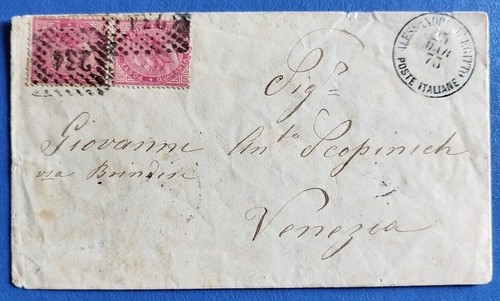 234
ALESSANDRIA D'EGITTO
25
MAR
75
POSTE ITALIANE
Sigr.
Giovanni Anto. Scopinich
via Brindisi
Venezia